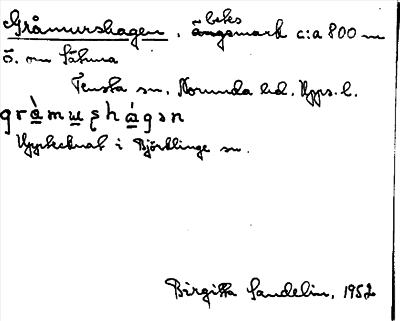 Gråmurshagen, beks ängsmark c:a 800 m
ö. om Sätuna
Tensta sn. Norunda hd. Upps. l.
gràmushágən
Upptecknat i Björklinge sn.
Birgitta Sandelin, 1952